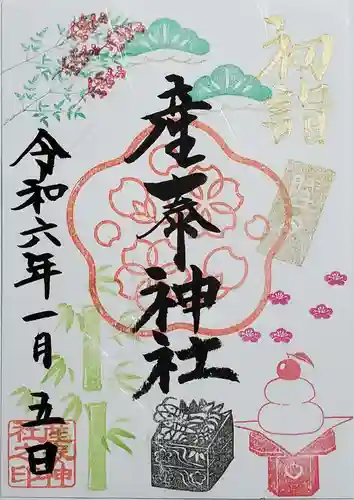 初詣
産泰神社
令和六年一月五日
産泰神
社之印